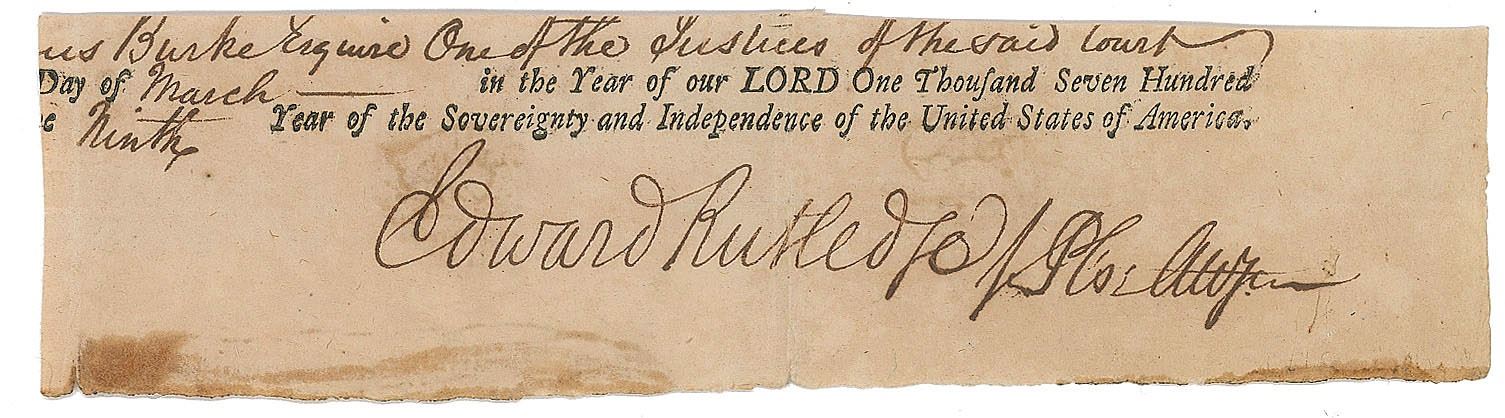 us Burke Esquire One of the Justices of the said Court
Day of March in the Year of our LORD One Thouſand Seven Hundred
e Ninth Year of the Sovereignty and Independence of the United States of America.
Edward Rutledge